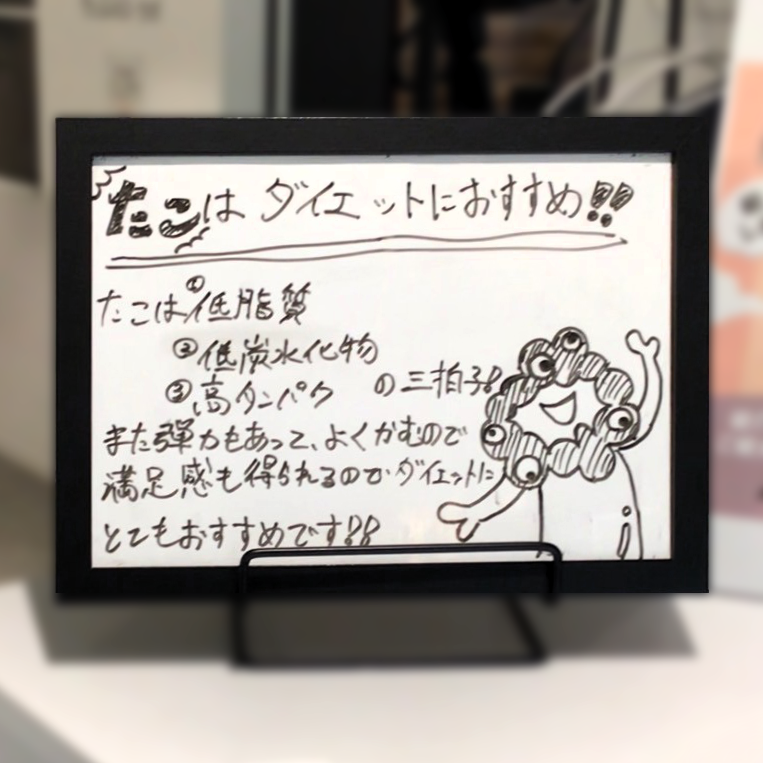 たこは ダイエットにおすすめ!!
たこは①低脂質
②低炭水化物
③高タンパク の三拍子!!
また弾力もあって、よくかむので
満足感も得られるのでダイエットに
とてもおすすめです!!